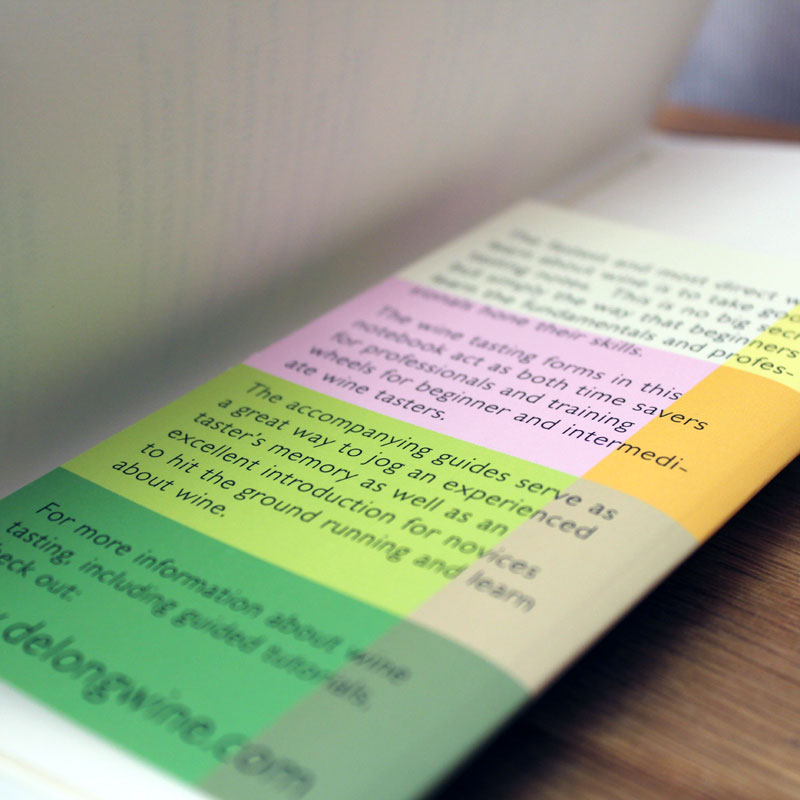 The fastest and most direct w
learn about wine is to take goo
tasting notes. This is no big secr
But simply the way that beginners
learn the fundamentals and profes-
sionals hone their skills.
The wine tasting forms in this
notebook act as both time savers
for professionals and training
wheels for beginner and intermedi-
ate wine tasters.
The accompanying guides serve as
a great way to jog an experienced
taster's memory as well as an
excellent introduction for novices
to hit the ground running and learn
about wine.
For more information about wine
tasting, including guided tutorials,
eck out:
delongwine.com